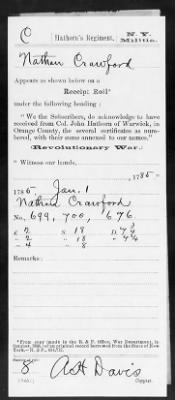 C Hathorn's Regiment. N. Y. Militia.
Nathan Crawford
Appears as shown below on a
Receipt Roll*
under the following heading:
"We the Subscribers, do acknowledge to have
received from Col. John Hathorn of Warwick, in
Orange County, the several certificates as num-
bered, with their sums annexed to our names."
Revolutionary War.
"Witness our hands,
, 1785"
1785, Jan. 1
Nathan Crawford
No. 699, 700, 676
£ 2 S. 18 D.
" 2 " 18 "
" 4 " 8
Remarks:
*From copy made in the R. & P. Office, War Department, in
8 ASH Davis
Copyist.